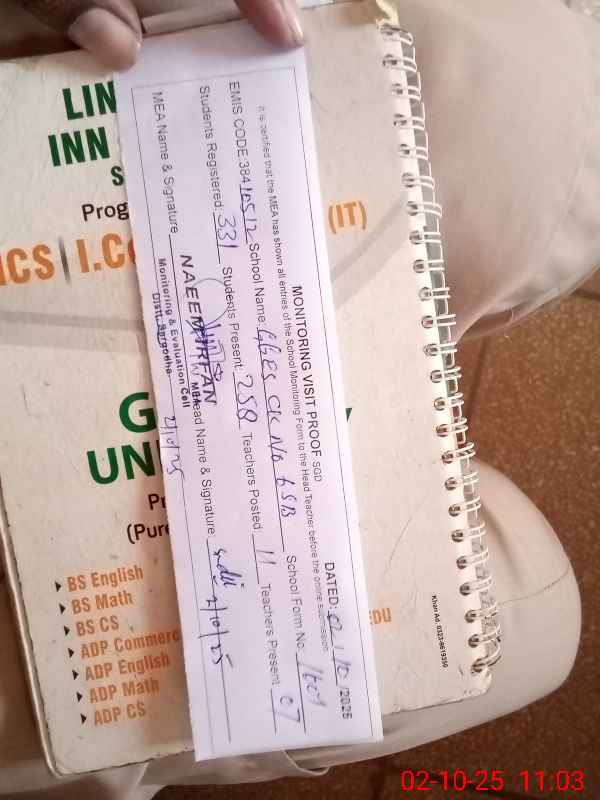 MONITORING VISIT PROOF SGD
DATED: 02/10/2025
It is certified that the MEA has shown all entries of the School Monitoring Form to the Head Teacher before the online submission
EMIS CODE 38410512 School Name: GGES CK No 65B School Form No. 1609
Students Registered: 331 Students Present: 258 Teachers Posted: 11 Teachers Present 07
MEA Name & Signature Head Name & Signature
NAEEM IRFAN
MEA
Monitoring & Evaluation Cell
Distt. Sargodha.
2/10/25
2/10/25
LIN
INN
S
Prog
(IT)
ICS | I.C
G
UN
Pr
(Pure
BS English
BS Math
BS CS
ADP Commerc
ADP English
ADP Math
ADP CS
EDU
Khan Ad. 0323-8619350
02-10-25 11:03